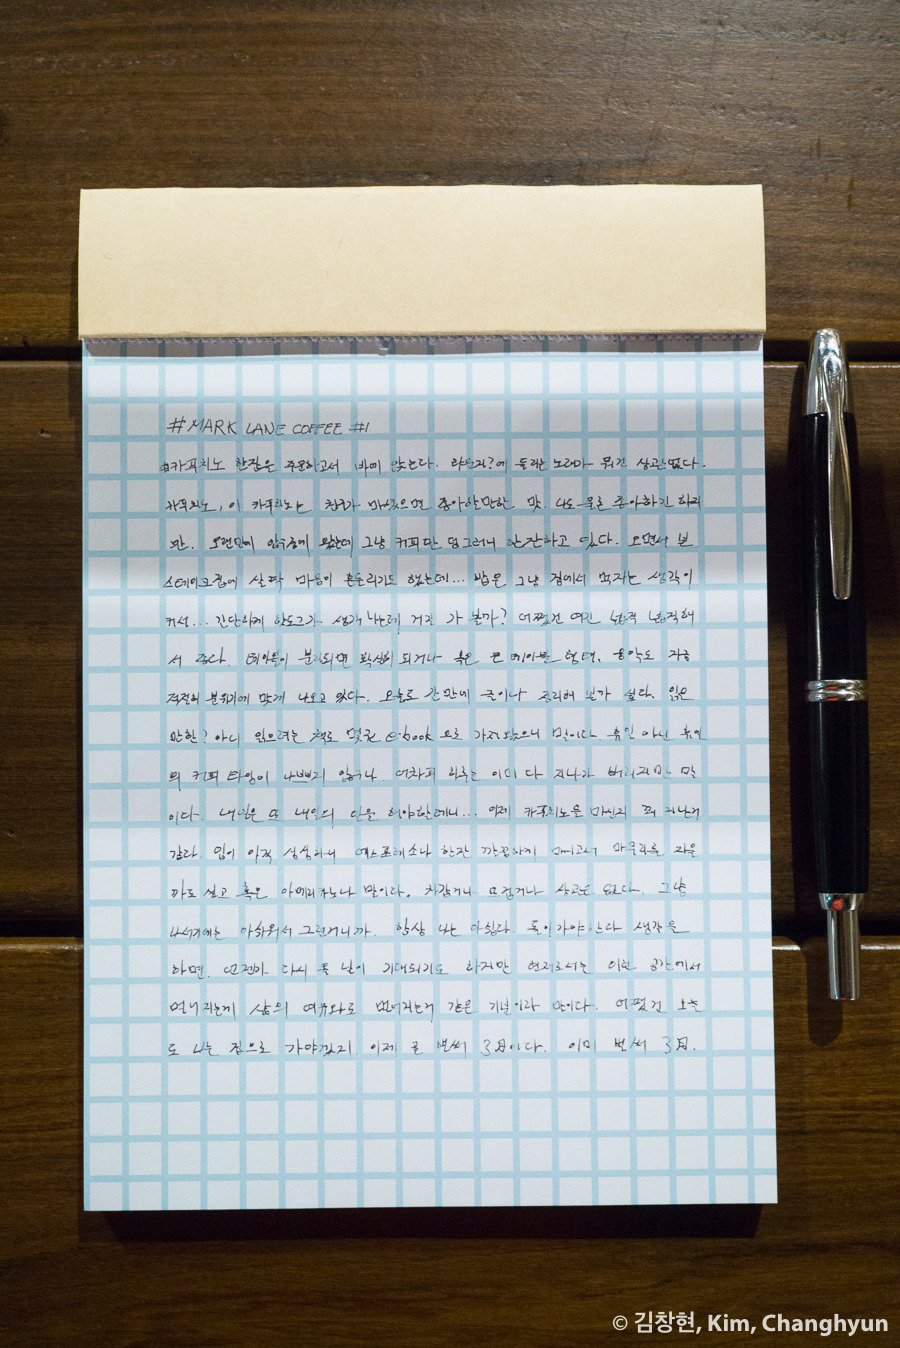 #MARK LANE COFFEE #1
#카푸치노 한잔은 주문하고서 바에 앉는다. 들리는 노래가 뭐건 상관없다.
카푸치노, 이 카푸치노는 마셨으면 좋아할만한 맛. 나도 좋아하긴 하지
만. 오랜만에 압구정에 왔는데 그냥 커피만 덩그러니 한잔하고 있다. 오면서 본
스테이크집에 살짝 마음이 흔들리기도 했는데... 밥은 그냥 집에서 먹자는 생각이
커서... 간단하게 핫도그가 생각나는데 거길 가 볼까? 어쨌건 여긴 넓적 넓적해
서 좋다. 테이블이 분리되면 확실히 되거나 혹은 큰 테이블 형태, 음악도 지금
적절히 분위기에 맞게 나오고 있다. 오늘도 간만에 책이나 좀 읽어 볼까 싶다. 읽을
만한? 아니 읽으려는 책도 몇권 e-book 으로 가져왔으니 말이다. 휴일 아닌 휴일
의 커피 타임이 나쁘지 않구나. 어차피 하루는 이미 다 지나가 버리지만 말
이다. 내일은 또 내일의 일을 해야할테니... 이제 카푸치노를 마신지 꽤 지난거
같다. 입이 아직 심심하니 에스프레소나 한잔 깔끔하게 마시고서 마무리를 지을
까도 싶고 혹은 아메리카노나 말이다. 차갑거나 뜨겁거나 상관은 없다. 그냥
나서기에는 아쉬워서 그런거니까. 항상 나는 아쉽다. 돌아가야한다 생각을
하면. 언젠가 다시 올 날이 기대되기도 하지만 현재로서는 이런 공간에서
멀어지는게 삶의 여유와도 멀어지는거 같은 기분이라 말이다. 어쨌건 오늘
도 나는 집으로 가야겠지. 이제 곧 벌써 3月이다. 이미 벌써 3月.
© 김창현, Kim, Changhyun